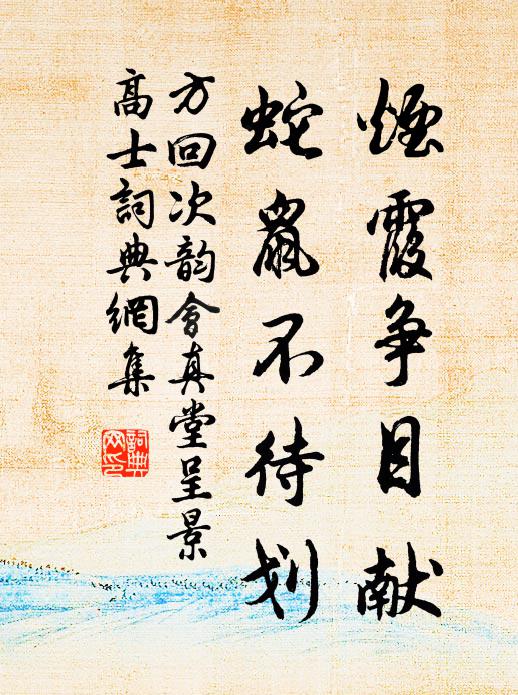 煙霞争目献
蛇鼠不待划
方回次韵會真堂呈景
高士詞典網集
詞典